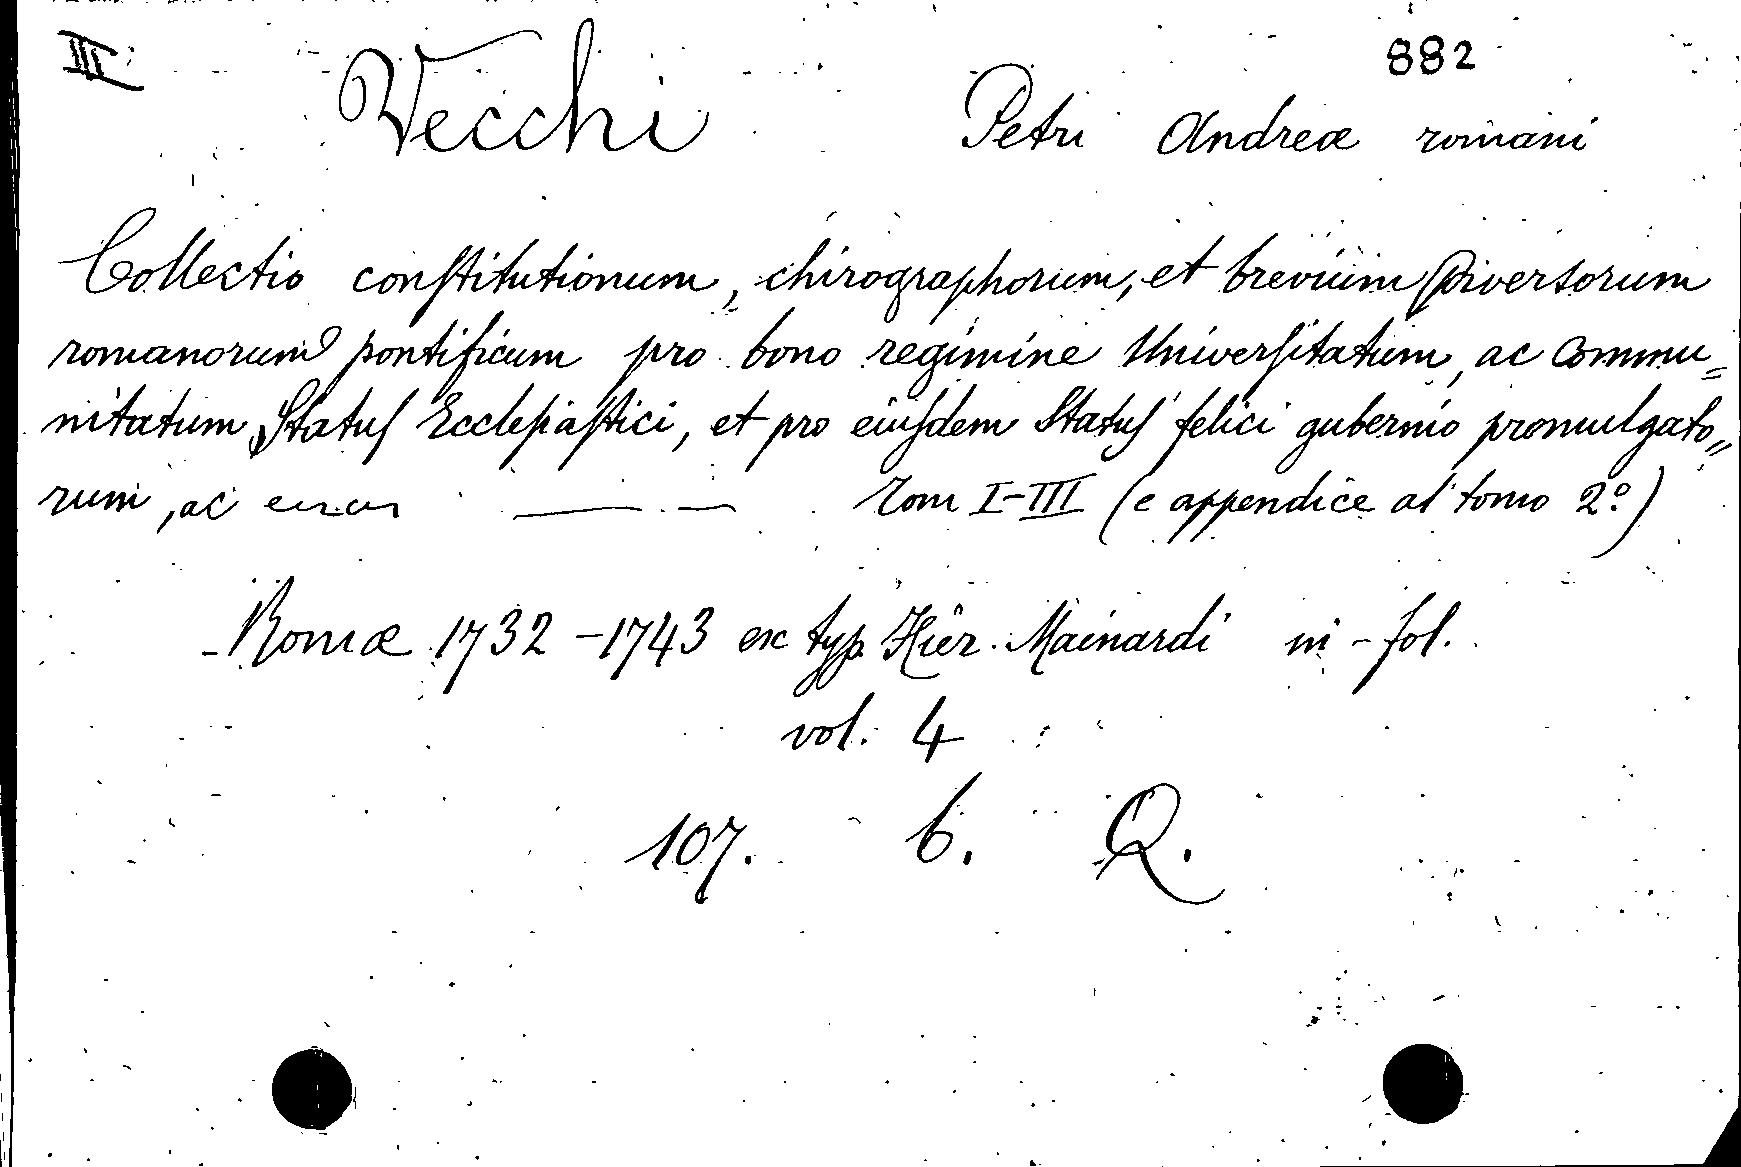 III 882
Vecchi Petri Andreæ romani
Collectio conſtitutionum, chirographorum, et brevium Diversorum
romanorum pontificum pro bono regimine Univerſitatum, ac Commu=
nitatum Statuſ Eccleſiaſtici, et pro eiuſdem Statuſ felici gubernio promulgato=
rum, ac — Tom I-III (e appendice al tomo 2º)
Romæ 1732-1743 ex typ. Hier. Mainardi in-fol.
vol. 4
107. 6. Q.